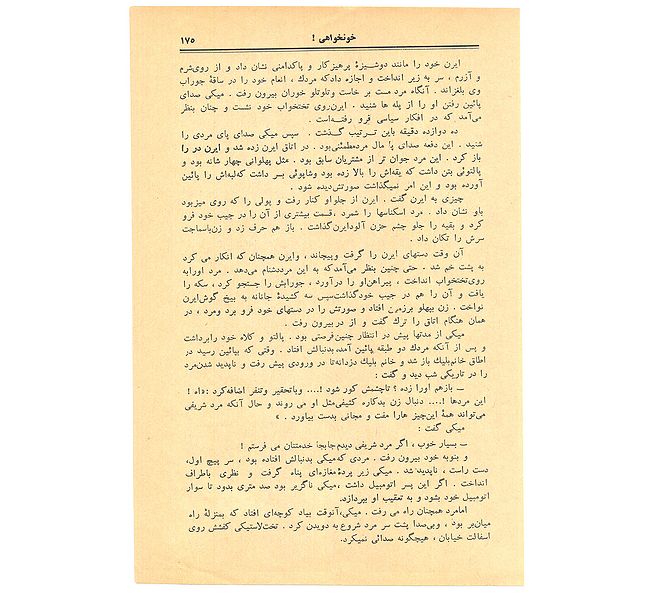 خونخواهی !
۱۷۵
ایرن خود را مانند دوشیزهٔ پرهیزکار و پاکدامنی نشان داد و از روی‌شرم
و آزرم ، سر به زیر انداخت و اجازه داد که مردك ، انعام خود را در ساقهٔ جوراب
وی بلغزاند . آنگاه مرد مست بر خاست وتلوتلو خوران بیرون رفت . میکی صدای
پائین رفتن او را از پله ها شنید . ایرن‌روی تختخواب خود نشست و چنان بنظر
می‌آمد که در افکار سیاسی فرو رفته‌است .
ده دوازده دقیقه باین ترتیب گذشت . سپس میکی صدای پای مردی را
شنید . این دفعه صدای پا مال مردمطمئنی‌بود . در اتاق ایرن زده شد و ایرن در را
باز کرد . این مرد جوان تر از مشتریان سابق بود . مثل پهلوانی چهار شانه بود و
پالتوئی بتن داشت که یقه‌اش را بالا زده بود وشاپوئی بسر داشت که‌لبه‌اش را پائین
آورده بود و این امر نمیگذاشت صورتش‌دیده شود .
چیزی به ایرن گفت . ایرن از جلواو کنار رفت و پولی را که روی میزبود
باو نشان داد . مرد اسکناسها را شمرد ،قسمت بیشتری از آن را در جیب خود فرو
کرد و بقیه را جلو چشم حزن آلودایرن‌گذاشت . باز هم حرف زد و زن‌باسماجت
سرش را تکان داد .
آن وقت دستهای ایرن را گرفت وپیچاند ، وایرن همچنان که انکار می کرد
به پشت خم شد . حتی چنین بنظر می‌آمدکه به این مرددشنام می‌دهد . مرد اورابه
روی‌تختخواب انداخت ، پیراهن‌او را درآورد ، جورابش را جستجو کرد ، سکه را
یافت و آن را هم در جیب خودگذاشت‌سپس سه کشیدهٔ جانانه به بیخ گوش‌ایرن
نواخت . زن بپهلو برزمین افتاد و صورتش را در دستهای خود فرو برد ومرد ، در
همان هنگام اتاق را ترك گفت و از در بیرون رفت .
میکی از مدتها پیش در انتظار چنین‌فرصتی بود . پالتو و کلاه خود رابرداشت
و پس از آنکه مردك دو طبقه پائین آمد، بدنبالش افتاد . وقتی که بپائین رسید در
اطاق خانم‌بلیك باز شد و خانم بلیك دزدانه‌تا در ورودی پیش رفت و ناپدید شدن‌مرد
را در تاریکی شب دید و گفت :
ــ بازهم اورا زده ؟ تاچشمش کور شود !.... وباتحقیر وتنفر اضافه‌کرد :«اه !
این مردها !.... دنبال زن بدکاره کثیفی‌مثل او می روند و حال آنکه مرد شریفی
می‌تواند همهٔ این‌چیز هارا مفت و مجانی بدست بیاورد . »
میکی گفت :
ــ بسیار خوب ، اگر مرد شریفی دیدم‌جابجا خدمتتان می فرستم !
و بنوبه خود بیرون رفت . مردی که‌میکی بدنبالش افتاده بود ، سر پیچ اول،
دست راست ، ناپدید شد . میکی زیر پردهٔ مغازه‌ای پناه گرفت و نظری باطراف
انداخت . اگر این پسر اتومبیل داشت ،میکی ناگزیر بود صد متری بدود تا سوار
اتومبیل خود بشود و به تعقیب او بپردازد.
امامرد همچنان راه می رفت . میکی،آنوقت بیاد کوچه‌ای افتاد که بمنزلهٔ راه
میان‌بر بود ، وبی‌صدا پشت سر مرد شروع به دویدن کرد . تخت‌لاستیکی کفشش روی
اسفالت خیابان ، هیچگونه صدائی نمیکرد.